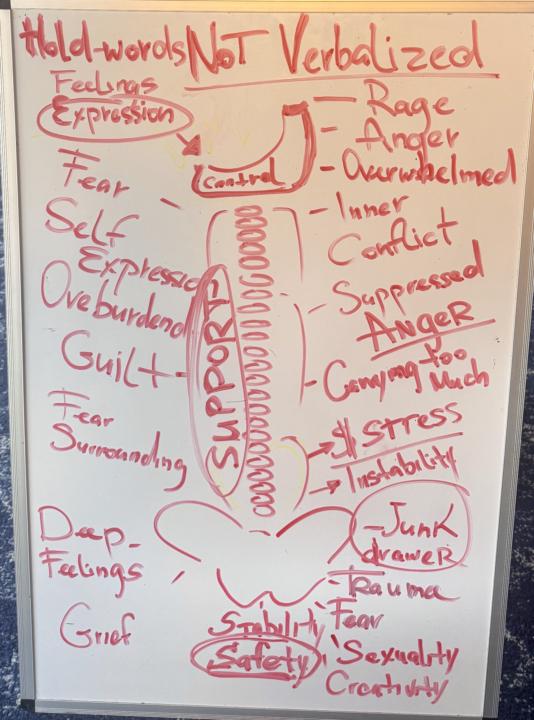 Hold-words NOT Verbalized
Feelings
Expression
Control
Rage
Anger
Overwhelmed
Fear
Inner
Conflict
Self
Expression
Suppressed
ANGER
Overburdend
SUPPORT
Guilt
Carrying too
Much
Fear
Surrounding
$ STRESS
Instability
Junk
drawer
Deep-
Feelings
Trauma
Grief
Stability
Fear
Safety
Sexuality
Creativity